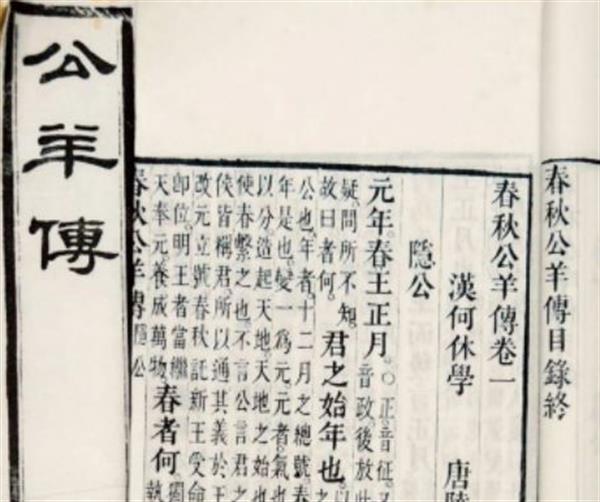 公羊傳
春秋公羊傳目錄終
春秋公羊傳卷一
漢何休學 唐
隱公
元年春王正月。○正音征。又
音政後放此
疑。問所不知。
故曰者何。
君之始年也。以
公也。年者。十二月之總號。春
年是也。變一爲元。元者。氣也
以分。造起天地。天地之始也
使春繫之也。不言公。言君之
侯皆稱君。所以通其義於王
改元立號。春秋託新王受命
卽位。明王者當繼
天奉元。養成萬物。
春者何。獨
春秋公羊傳 隱公